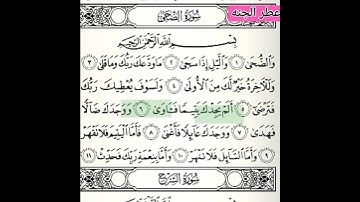 عطر الجنه
سُورَةُ الضُّحَىٰ
بِسْمِ اللَّهِ الرَّحْمَٰنِ الرَّحِيمِ
وَالضُّحَىٰ ١ وَاللَّيْلِ إِذَا سَجَىٰ ٢ مَا وَدَّعَكَ رَبُّكَ وَمَا قَلَىٰ ٣
وَلَلْآخِرَةُ خَيْرٌ لَّكَ مِنَ الْأُولَىٰ ٤ وَلَسَوْفَ يُعْطِيكَ رَبُّكَ
فَتَرْضَىٰ ٥ أَلَمْ يَجِدْكَ يَتِيمًا فَآوَىٰ ٦ وَوَجَدَكَ ضَالًّا
فَهَدَىٰ ٧ وَوَجَدَكَ عَائِلًا فَأَغْنَىٰ ٨ فَأَمَّا الْيَتِيمَ فَلَا تَقْهَرْ
٩ وَأَمَّا السَّائِلَ فَلَا تَنْهَرْ ١٠ وَأَمَّا بِنِعْمَةِ رَبِّكَ فَحَدِّثْ ١١
سُورَةُ الشَّرْحِ